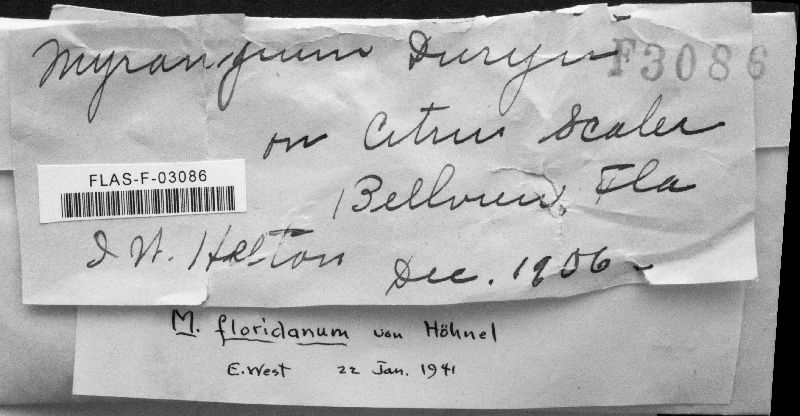 Myrangium Duryii F3086
on Citrus Scales
FLAS-F-03086
Bellview, Fla
I W. Helton
Dec. 1906
M. floridanum von Höhnel
E. West 22 Jan. 1941